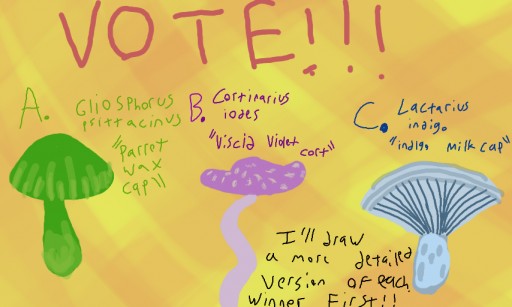 VOTE!!!
A. Gliosphorus
psittacinus
"Parrot
wax
cap"
B. Cortinarius
iodes
"Viscid Violet
cort"
C. Lactarius
indigo
"indigo milk cap"
I'll draw
a more detailed
version of each
winner first!!